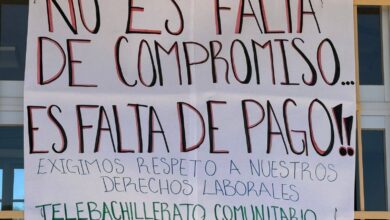 "NO ES FALTA
DE COMPROMISO...
ES FALTA DE PAGO!!
EXIGIMOS RESPETO A NUESTROS
DERECHOS LABORALES
TELEBACHILLERATO COMUNITARIO !